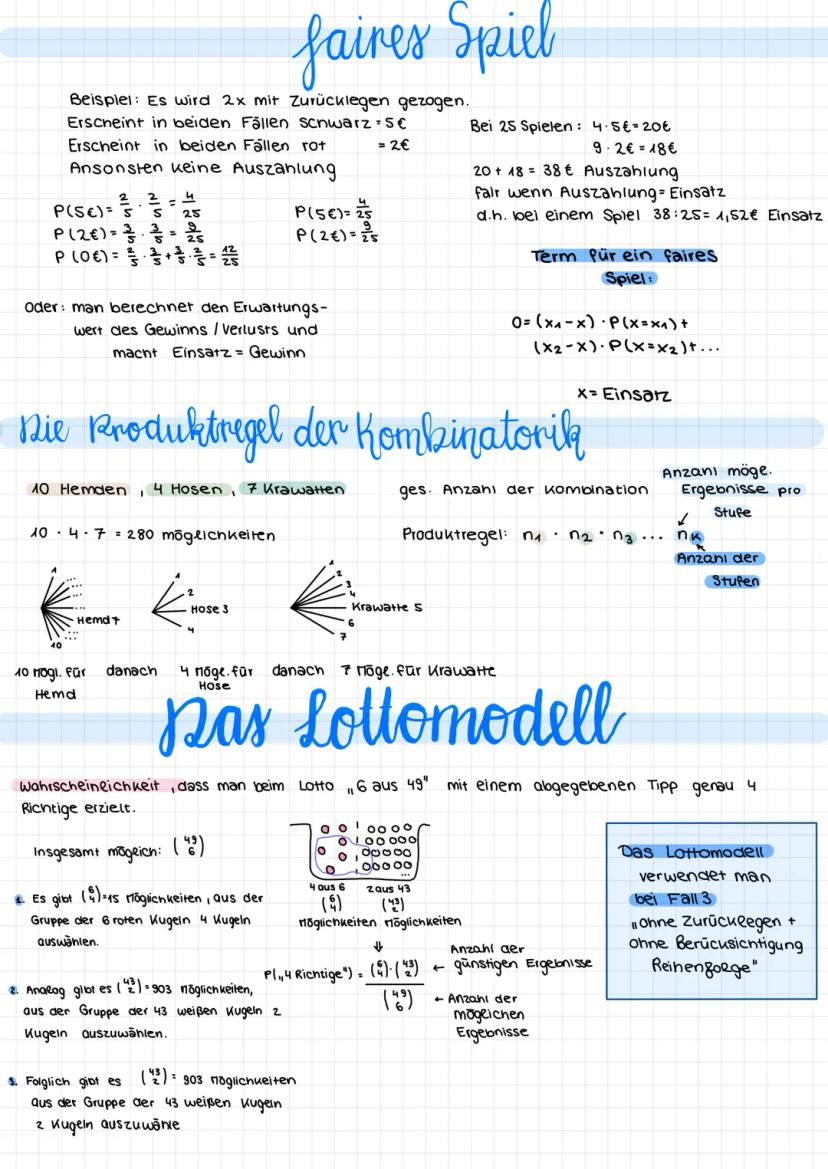 faires Spiel
Beispiel: Es wird 2x mit Zurücklegen gezogen.
Erscheint in beiden Fällen schwarz = 5€
Erscheint in beiden Fällen rot = 2€
Ansonsten keine Auszahlung
P(5€) = 2/5 · 2/5 = 4/25
P(2€) = 3/5 · 3/5 = 9/25
P(0€) = 2/5 · 3/5 + 3/5 · 2/5 = 12/25
P(5€) = 4/25
P(2€) = 9/25
Bei 25 Spielen: 4·5€ = 20€
9·2€ = 18€
20 + 18 = 38€ Auszahlung
fair wenn Auszahlung = Einsatz
d.h. bei einem Spiel 38:25 = 1,52€ Einsatz
Term für ein faires
Spiel:
0 = (x₁-x) · P(x=x₁) +
(x₂-x) · P(x=x₂) + ...
x = Einsatz
oder: man berechnet den Erwartungs-
wert des Gewinns / Verlusts und
macht Einsatz = Gewinn
Die Produktregel der Kombinatorik
10 Hemden, 4 Hosen, 7 Krawatten
10 · 4 · 7 = 280 möglichkeiten
ges. Anzahl der Kombination
Anzahl möge.
Ergebnisse pro
Stufe
Produktregel: n₁ · n₂ · n₃ ... nₖ
Anzahl der
Stufen
1
Hemd 7
10
1
2
Hose 3
4
1
2
3
4
Krawatte 5
6
7
10 mögl. für danach 4 möge. für danach 7 möge. für Krawatte
Hemd Hose
Das Lottomodell
Wahrscheinlichkeit, dass man beim Lotto „6 aus 49" mit einem abgegebenen Tipp genau 4
Richtige erzielt.
Insgesamt möglich: (49 6)
4 aus 6 2 aus 43
(6 4) (43 2)
möglichkeiten möglichkeiten
1. Es gibt (6 4) = 15 möglichkeiten, aus der
Gruppe der 6 roten Kugeln 4 Kugeln
auswählen.
P(„4 Richtige") = (6 4) · (43 2) / (49 6)
← Anzahl der
günstigen Ergebnisse
← Anzahl der
möglichen
Ergebnisse
2. Analog gibt es (43 2) = 903 möglichkeiten,
aus der Gruppe der 43 weißen Kugeln 2
Kugeln auszuwählen.
3. Folglich gibt es (43 2) = 903 möglichkeiten
aus der Gruppe der 43 weißen Kugeln
2 Kugeln auszuwähle
Das Lottomodell
verwendet man
bei Fall 3
„ohne Zurücklegen +
ohne Berücksichtigung
Reihenfolge"